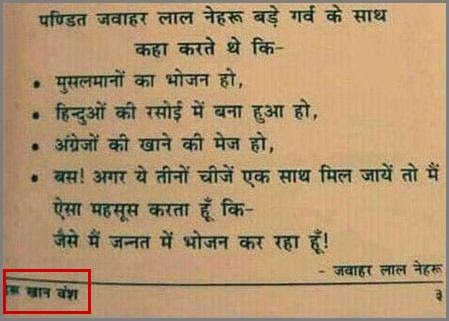 पण्डित जवाहर लाल नेहरू बड़े गर्व के साथ
कहा करते थे कि-
• मुसलमानों का भोजन हो,
• हिन्दुओं की रसोई में बना हुआ हो,
• अंग्रेजों की खाने की मेज हो,
• बस! अगर ये तीनों चीजें एक साथ मिल जायें तो मैं
ऐसा महसूस करता हूँ कि-
जैसे मैं जन्नत में भोजन कर रहा हूँ!
- जवाहर लाल नेहरू
खान वंश ३